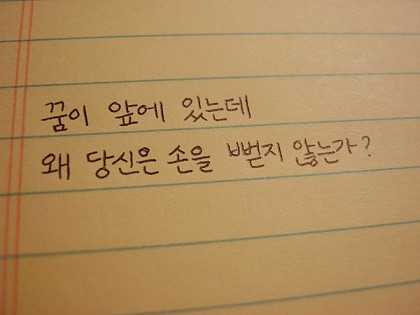 꿈이 앞에 있는데
왜 당신은 손을 뻗지 않는가?